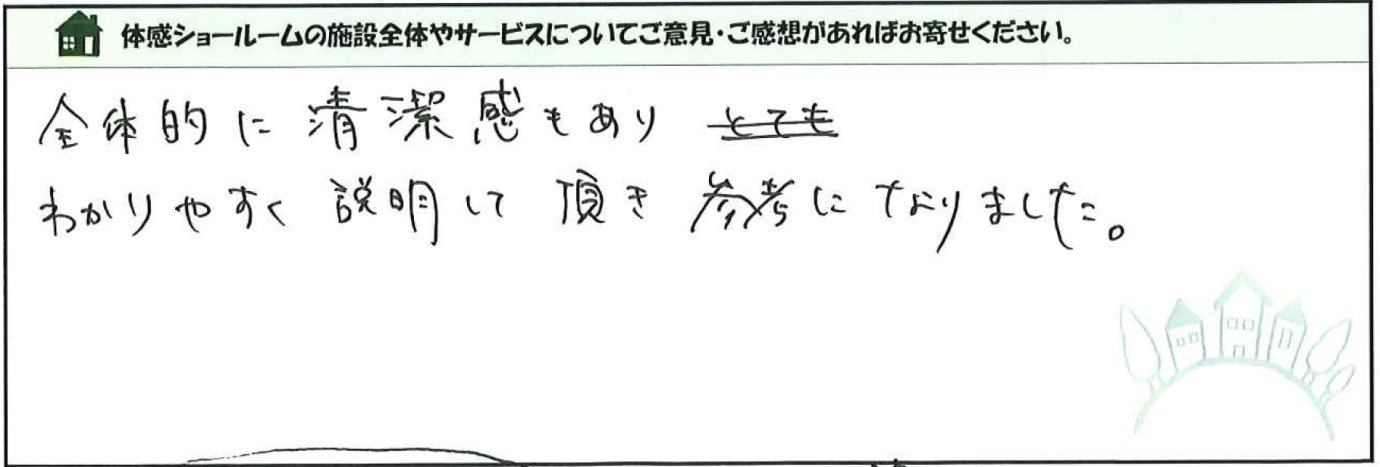 体感ショールームの施設全体やサービスについてご意見・ご感想があればお寄せください。
全体的に清潔感もあり とても
わかりやすく説明して頂き参考になりました。